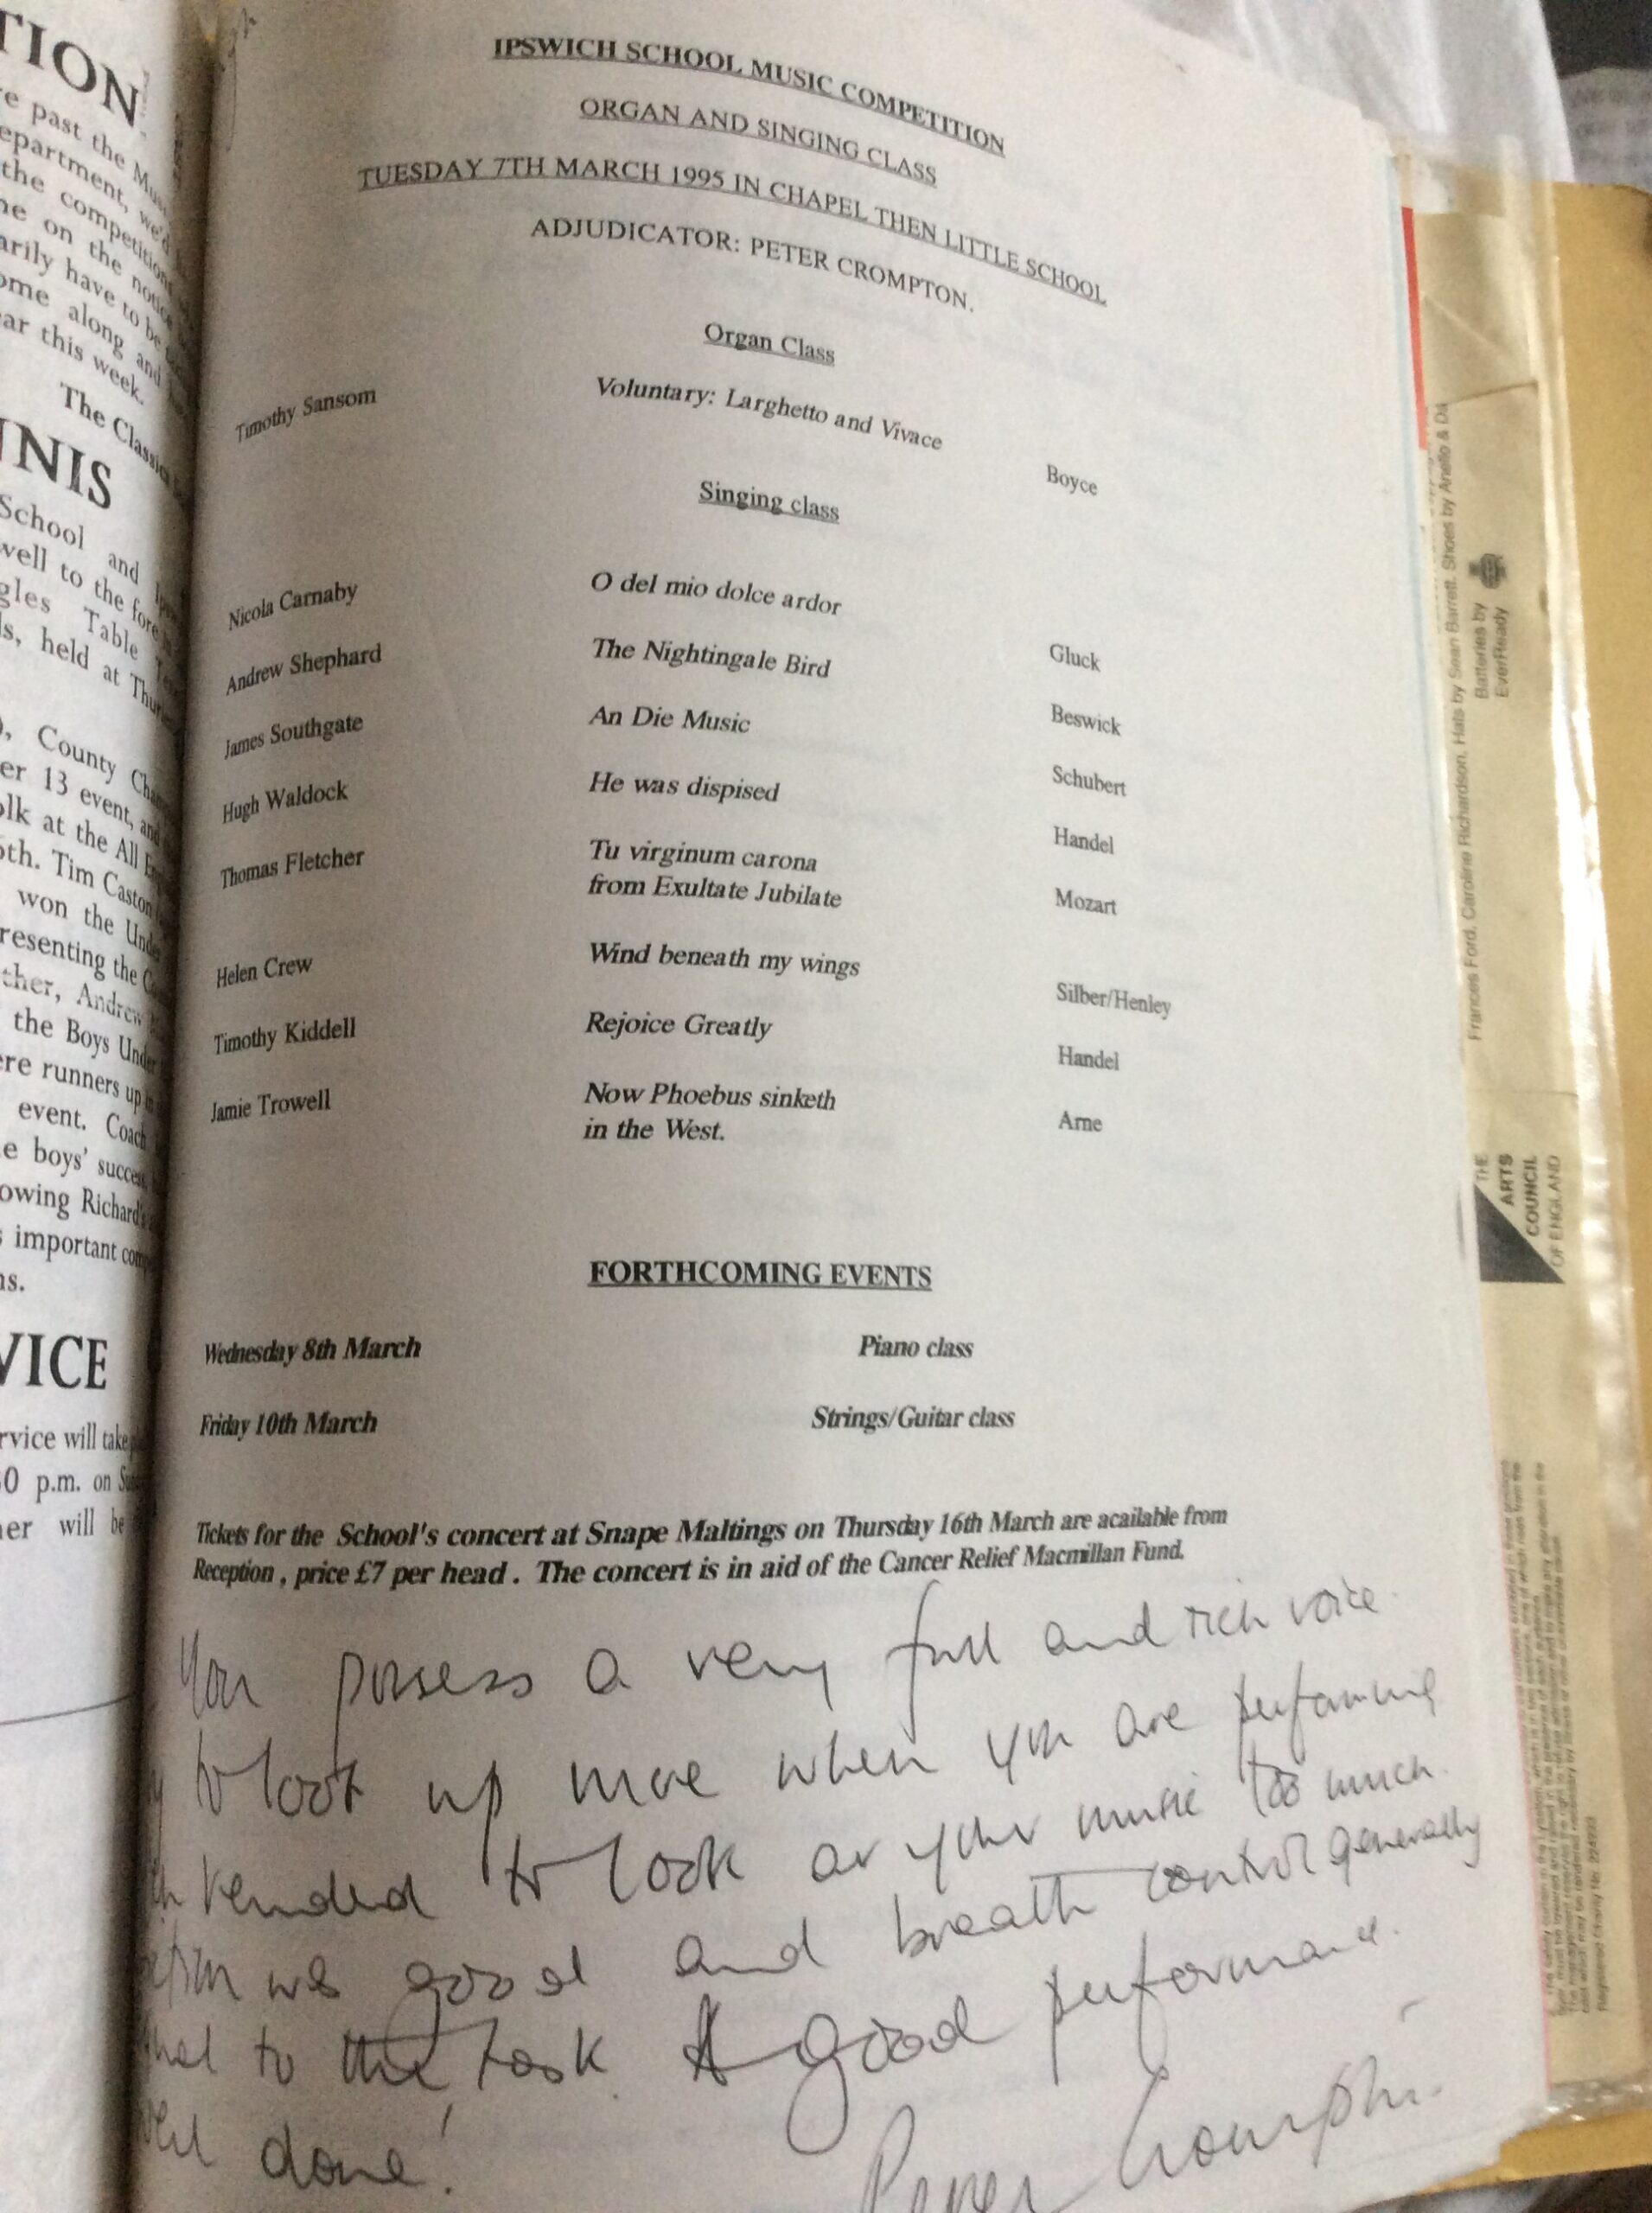 TION
e past the Mus
epartment, we'd
the competition
ne on the notic
arily have to be
ome along and
ar this week.
The Classic
NNIS
School and
well to the fore
gles Table
ls, held at
County
er 13 event, and
olk at the All
6th. Tim Caston
won the Unde
resenting the
ther, Andrew
the Boys Unde
ere runners up
event. Coach
e boys' succes
owing Richard's
important com
ns.
VICE
rvice will take
0 p.m. on
ner will be
IPSWICH SCHOOL MUSIC COMPETITION
ORGAN AND SINGING CLASS
TUESDAY 7TH MARCH 1995 IN CHAPEL THEN LITTLE SCHOOL
ADJUDICATOR: PETER CROMPTON.
Organ Class
Timothy Sansom Voluntary: Larghetto and Vivace Boyce
Singing class
Nicola Carnaby O del mio dolce ardor Gluck
Andrew Shephard The Nightingale Bird Beswick
James Southgate An Die Music Schubert
Hugh Waldock He was dispised Handel
Thomas Fletcher Tu virginum carona Mozart
from Exultate Jubilate
Helen Crew Wind beneath my wings Silber/Henley
Timothy Kiddell Rejoice Greatly Handel
Jamie Trowell Now Phoebus sinketh Arne
in the West.
FORTHCOMING EVENTS
Wednesday 8th March Piano class
Friday 10th March Strings/Guitar class
Tickets for the School's concert at Snape Maltings on Thursday 16th March are acailable from
Reception , price £7 per head . The concert is in aid of the Cancer Relief Macmillan Fund.
You possess a very full and rich voice.
to look up more when you are performing
tended to look at your music too much.
was good and breath control generally
to the task. A good performance.
well done!
Peter Crompton
Frances Ford, Caroline Richardson. Hats by Sean Barrett. Shoes by Anello & Da
Batteries by
EverReady
THE
ARTS
COUNCIL
OF ENGLAND